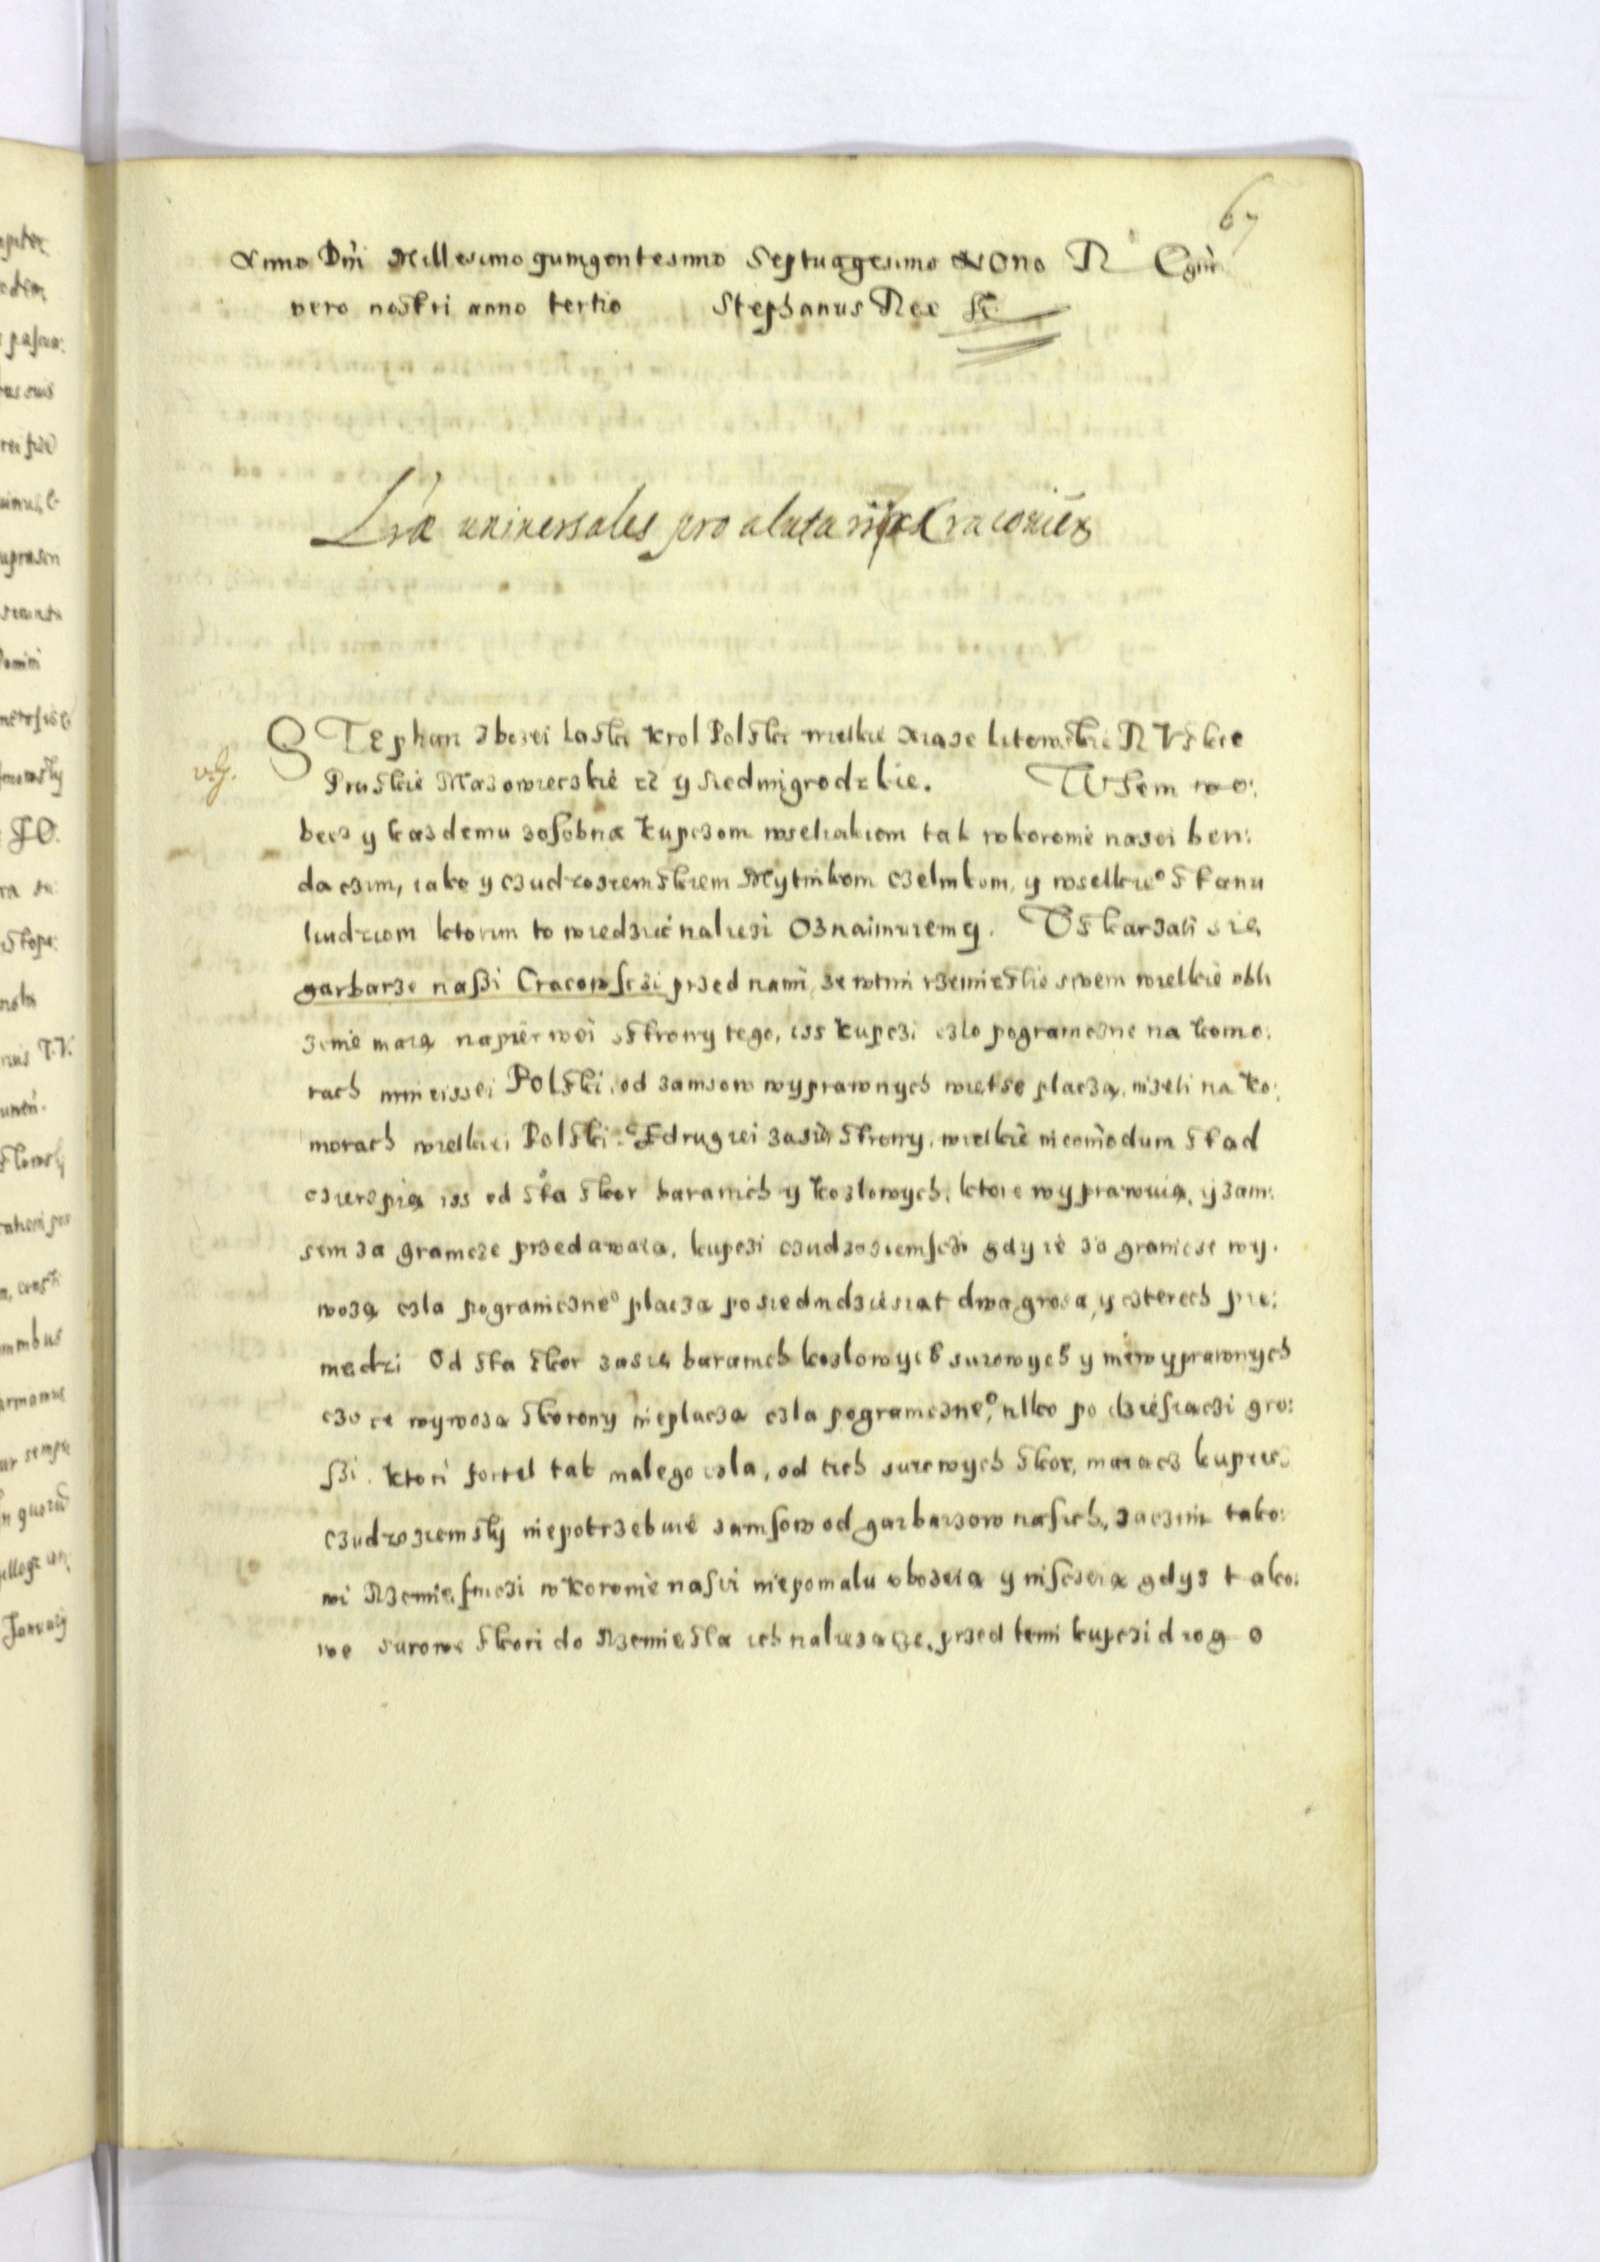 67
Anno Dni Millesimo quingentesimo Septuagesimo Nono R Egni
vero nostri anno tertio Stephanus Rex
Lræ universales pro Craconieñ
vig.
STephan z bozei Laski krol Polski wielkie Xiaze Litewskie RUskie
Pruskie Mazowieczkie et y siedmigrodzkie. WSem wo:
becz y kazdemu zosobna kupczom wseliakiem tak w koronie naszei ben:
daczim, iako y czudzoziemskiem Mytnikom czelnikom, y wselkieo stanu
liudziom ktorim to wiedziec naliezi Oznaimuiemy. USkarzali sie
garbarze naßi Cracowsczi przed nami, ze wtim rzemieslie swem wielkie obli
zenie maią napierwei strony tego, iss kupczi czlo pograniczne na komo:
rach mnieissei Polski, od zamsow wyprawnych wietse placzą, nizeli na ko:
morach wielkiei Polski. Zdrugiei zasie strony, wielkie incomodum stad
czierpią iss od sta skor baranich y kozlowych, ktore wyprawuią, y zam:
sem za granicze przedawaia, kupczi czudzoziemsczi gdy ie za granicze wy:
wozą czla pograniczneo placza po siedmdziesiat dwa grosa, y czterech pie:
niedzi Od sta skor zasię baranich kozlowych surowych y niewyprawnych
czo ie wywoza skorony nieplacza czla pograniczneo, tilko po dziesiaczi gro:
ßi. ktori fortel tak malego czla, od tich surowych skor, maiacz kupiecz
czudzoziemsky niepotrzebuie zamsow od garbarzow nasich, zaczim tako:
wi Rzemiesniczi w koronie nasei niepomalu vbozeią y nisczeią gdyz tako:
we surowe skori do Rzemiesla ich naliezacze, przed temi kupczi drogo